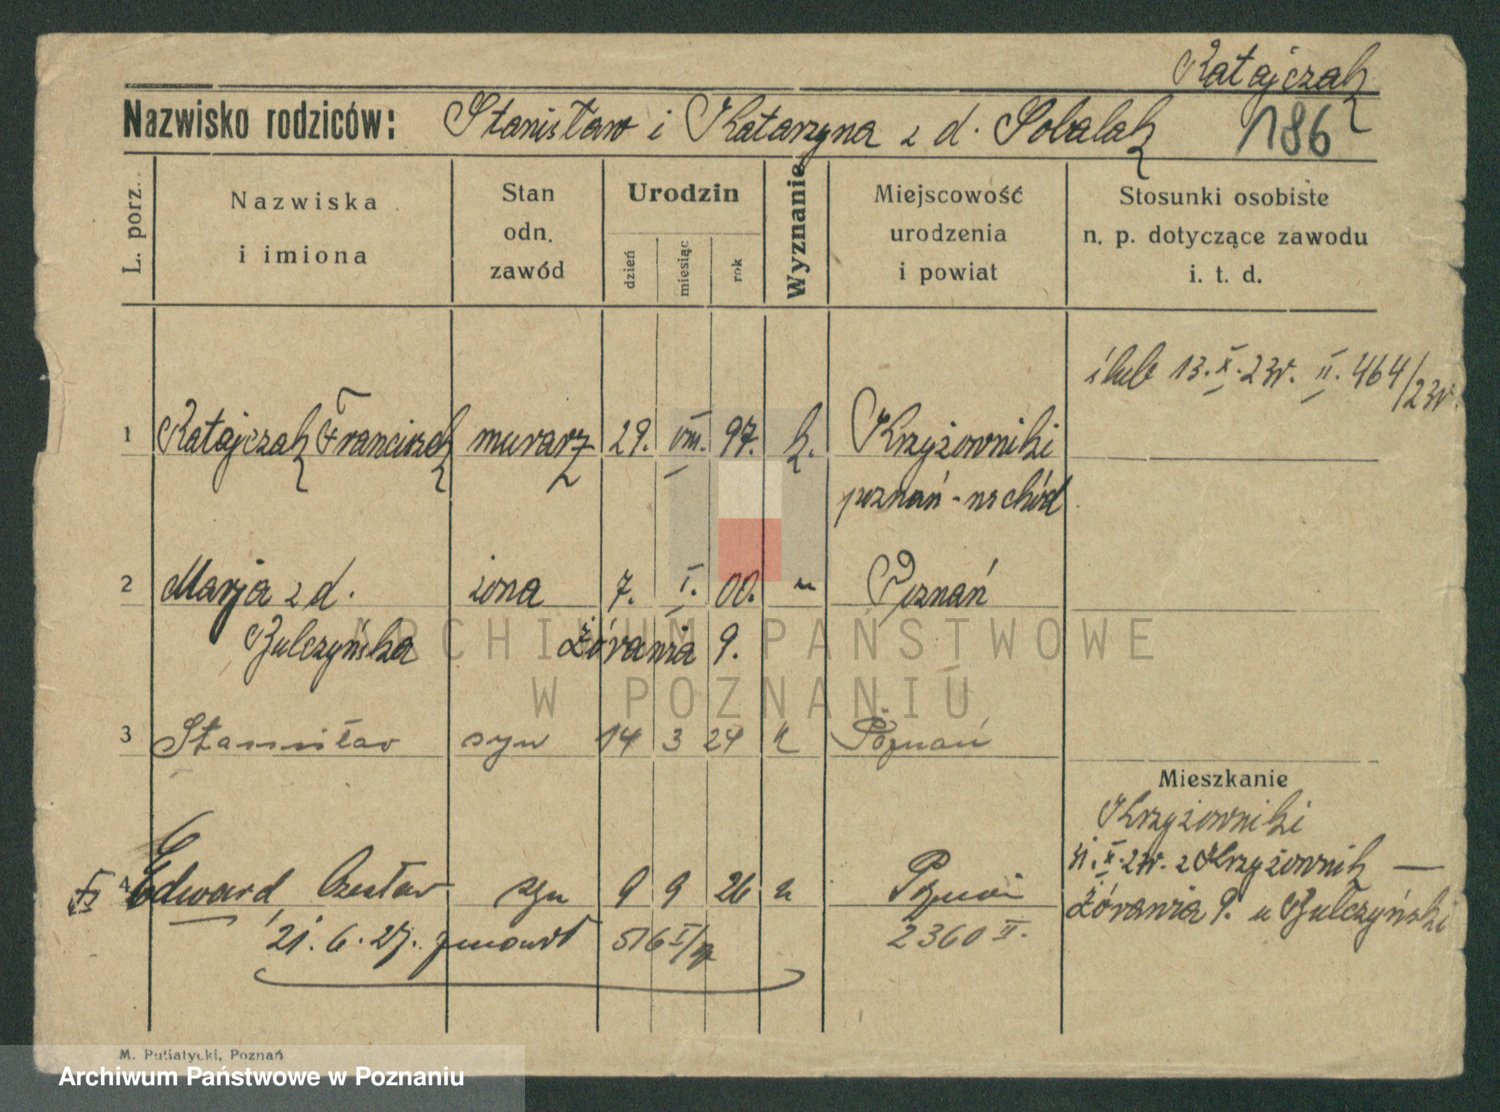 Ratajczak
Nazwisko rodziców: Stanisław i Katarzyna z d. Sobalak 186
L. porz.
Nazwiska
i imiona
Stan
odn.
zawód
Urodzin
dzień
miesiąc
rok
Wyznanie
Miejscowość
urodzenia
i powiat
Stosunki osobiste
n. p. dotyczące zawodu
i. t. d.
ślub 13. X. 23r. II. 464/23r.
1 Ratajczak Franciszek murarz 29. VIII. 97. k. Krzyżowniki
poznań-wschód
2 Marja z d. żona 7. I. 00. " Poznań
Bulczyńska Żórawia 9.
ARCHIWUM PAŃSTWOWE
W POZNANIU
3 Stanisław syn 14 3 24 k Poznań
Mieszkanie
Krzyżowniki
4 Edward Czesław syn 9 9 26 k Poznań
X. 23r. z Krzyżownik —
Żórawia 9. u Bulczyński
21. 6. 27. 516 I/27 2360 II.
M. Putiatycki, Poznań
Archiwum Państwowe w Poznaniu